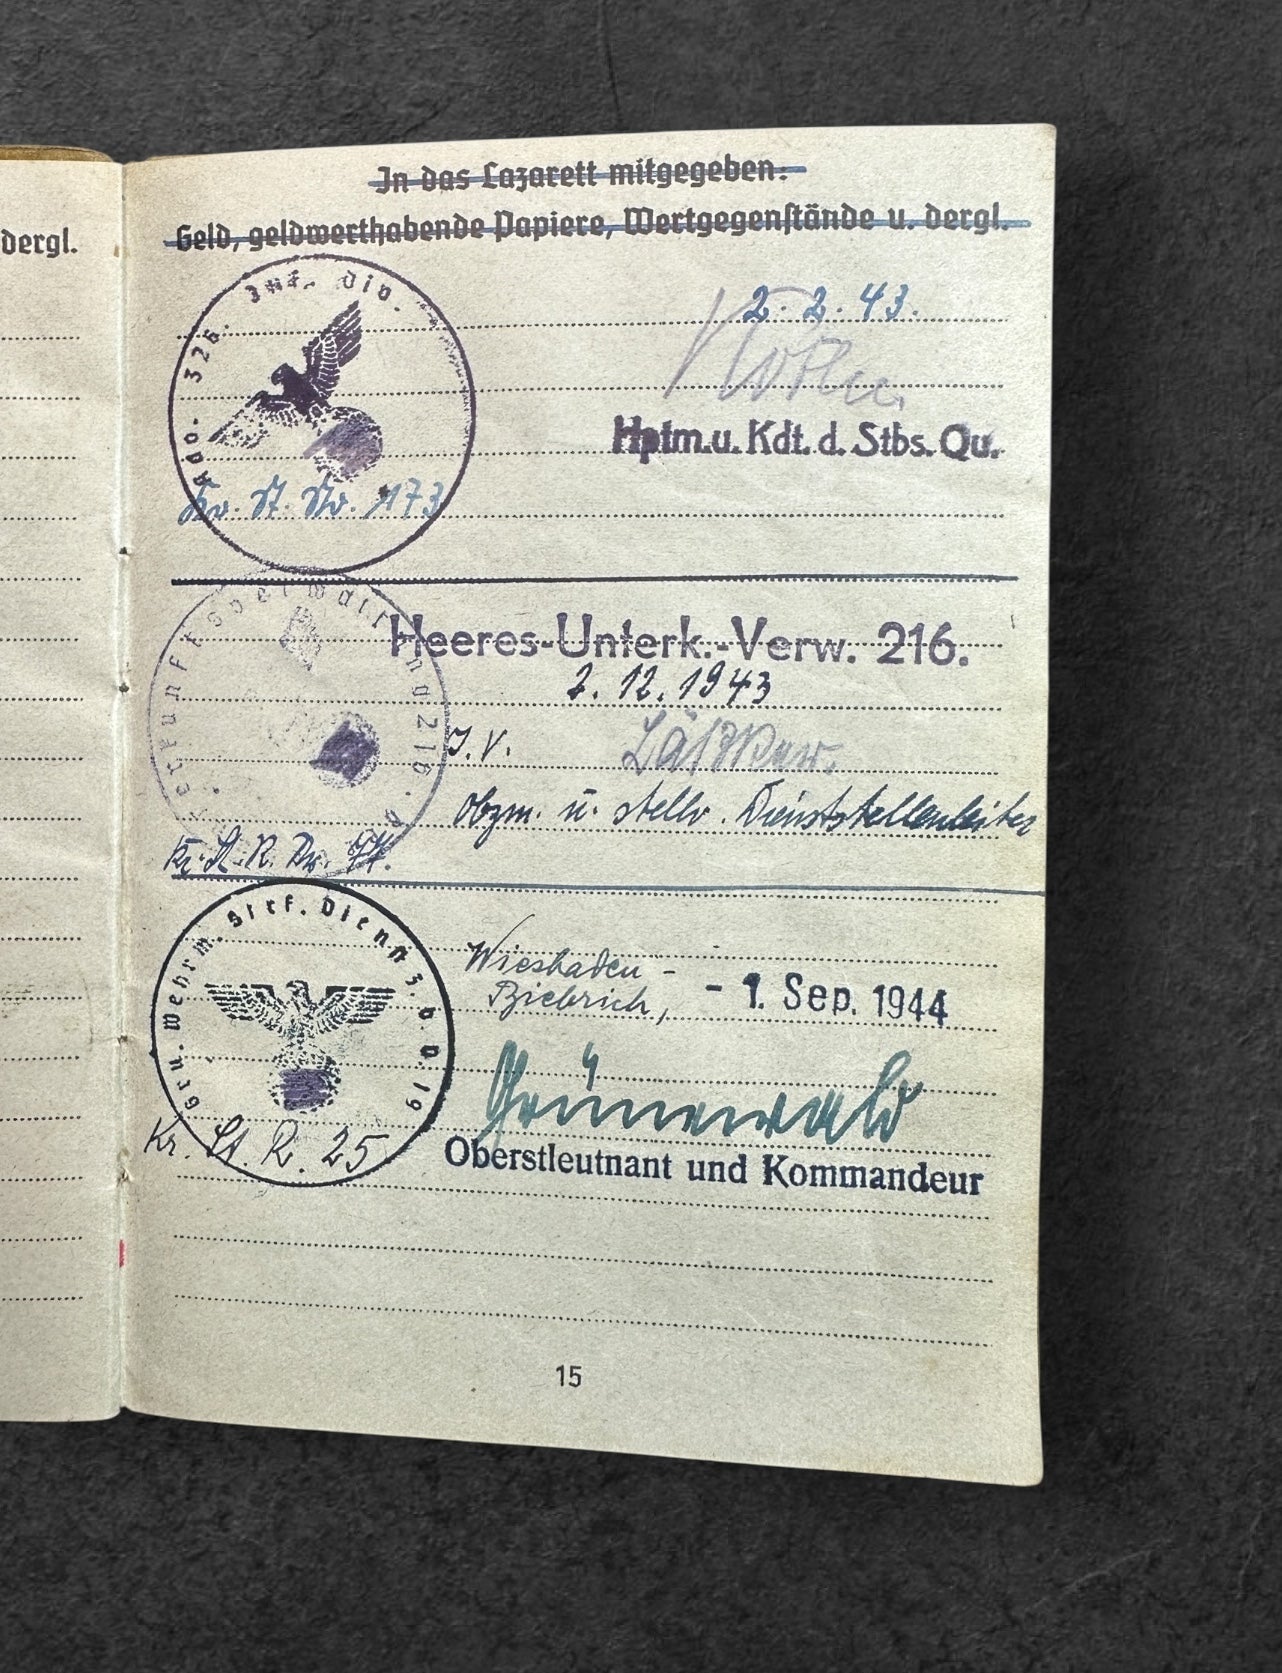 dergl.
In das Lazarett mitgegeben:
Geld, geldwerthabende Papiere, Wertgegenstände u. dergl.
Kdo. 326. Inf. Div.
2. 2. 43.
Hptm. u. Kdt. d. Stbs. Qu.
Kr. St. Nr. 173
Heeres-Unterk.-Verw. 216.
2. 12. 1943
J. V.
Obzm. u. stellv. Dienststellenleiter
Kr. St. R. Nr.
Gru. Wehrm. Strf. Dienst z. b. V. 19
Wiesbaden-
Biebrich,
- 1. Sep. 1944
Grünewald
Kr. St. R. 25
Oberstleutnant und Kommandeur
15